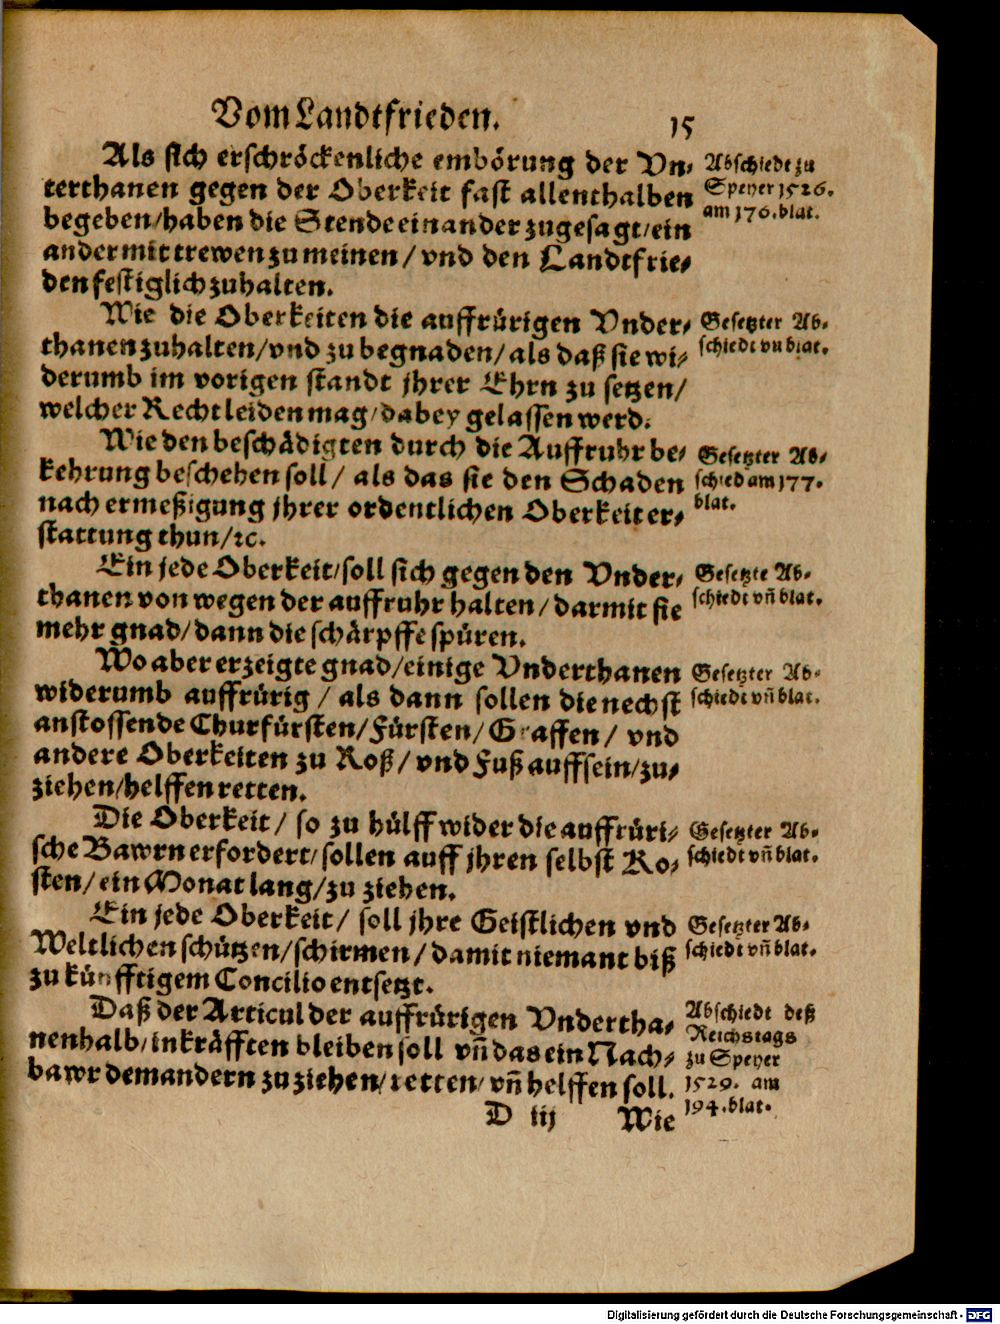 Vom Landtfrieden. 15
Als sich erschröckenliche embörung der Vn-
terthanen gegen der Oberkeit fast allenthalben
begeben/haben die Stende einander zugesagt/ein
ander mit trewen zu meinen/ vnd den Landtfrie-
den festiglich zuhalten.
Abschiedt zu
Speyer 1526.
am 176. blat.
Wie die Oberkeiten die auffrürigen Vnder-
thanen zuhalten/vnd zu begnaden/als daß sie wi-
derumb im vorigen standt jhrer Ehrn zu setzen/
welcher Recht leiden mag/dabey gelassen werd.
Gesetzter Ab-
schiedt vn blat.
Wie den beschädigten durch die Auffruhr be-
kehrung beschehen soll/ als das sie den Schaden
nach ermeßigung jhrer ordentlichen Oberkeit er-
stattung thun/ꝛc.
Gesetzter Ab-
schied am 177.
blat.
Ein jede Oberkeit/soll sich gegen den Vnder-
thanen von wegen der auffruhr halten/darmit sie
mehr gnad/dann die schärpffe spüren.
Gesetzte Ab-
schiedt vñ blat.
Wo aber erzeigte gnad/einige Vnderthanen
widerumb auffrürig/ als dann sollen die nechst
anstossende Churfürsten/Fürsten/Graffen/ vnd
andere Oberkeiten zu Roß/vnd Fuß auffsein/zu-
ziehen/helffen retten.
Gesetzter Ab-
schiedt vñ blat.
Die Oberkeit/ so zu hülff wider die auffrüri-
sche Bawrn erfordert/sollen auff jhren selbst Ko-
sten/ein Monat lang/zu ziehen.
Gesetzter Ab-
schiedt vñ blat.
Ein jede Oberkeit/ soll jhre Geistlichen vnd
Weltlichen schützen/schirmen/damit niemant biß
zu künfftigem Concilio entsetzt.
Gesetzter Ab-
schiedt vñ blat.
Daß der Articul der auffrürigen Vndertha-
nenhalb/in kräfften bleiben soll vñ das ein Nach-
bawr dem andern zu ziehen/retten/vñ helffen soll.
Abschiedt deß
Reichstags
zu Speyer
1529. am
194. blat.
D iij Wie
Digitalisierung gefördert durch die Deutsche Forschungsgemeinschaft - DFG